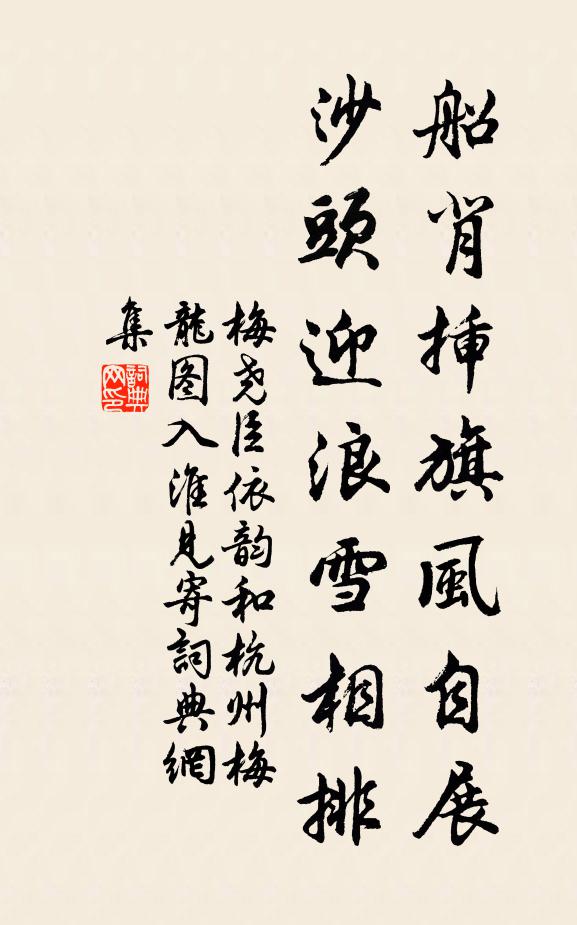 船背插旗風自展
沙頭迎浪雪相排
梅尧臣依韵和杭州梅
龍图入淮見寄詞典網
集
詞典
网印